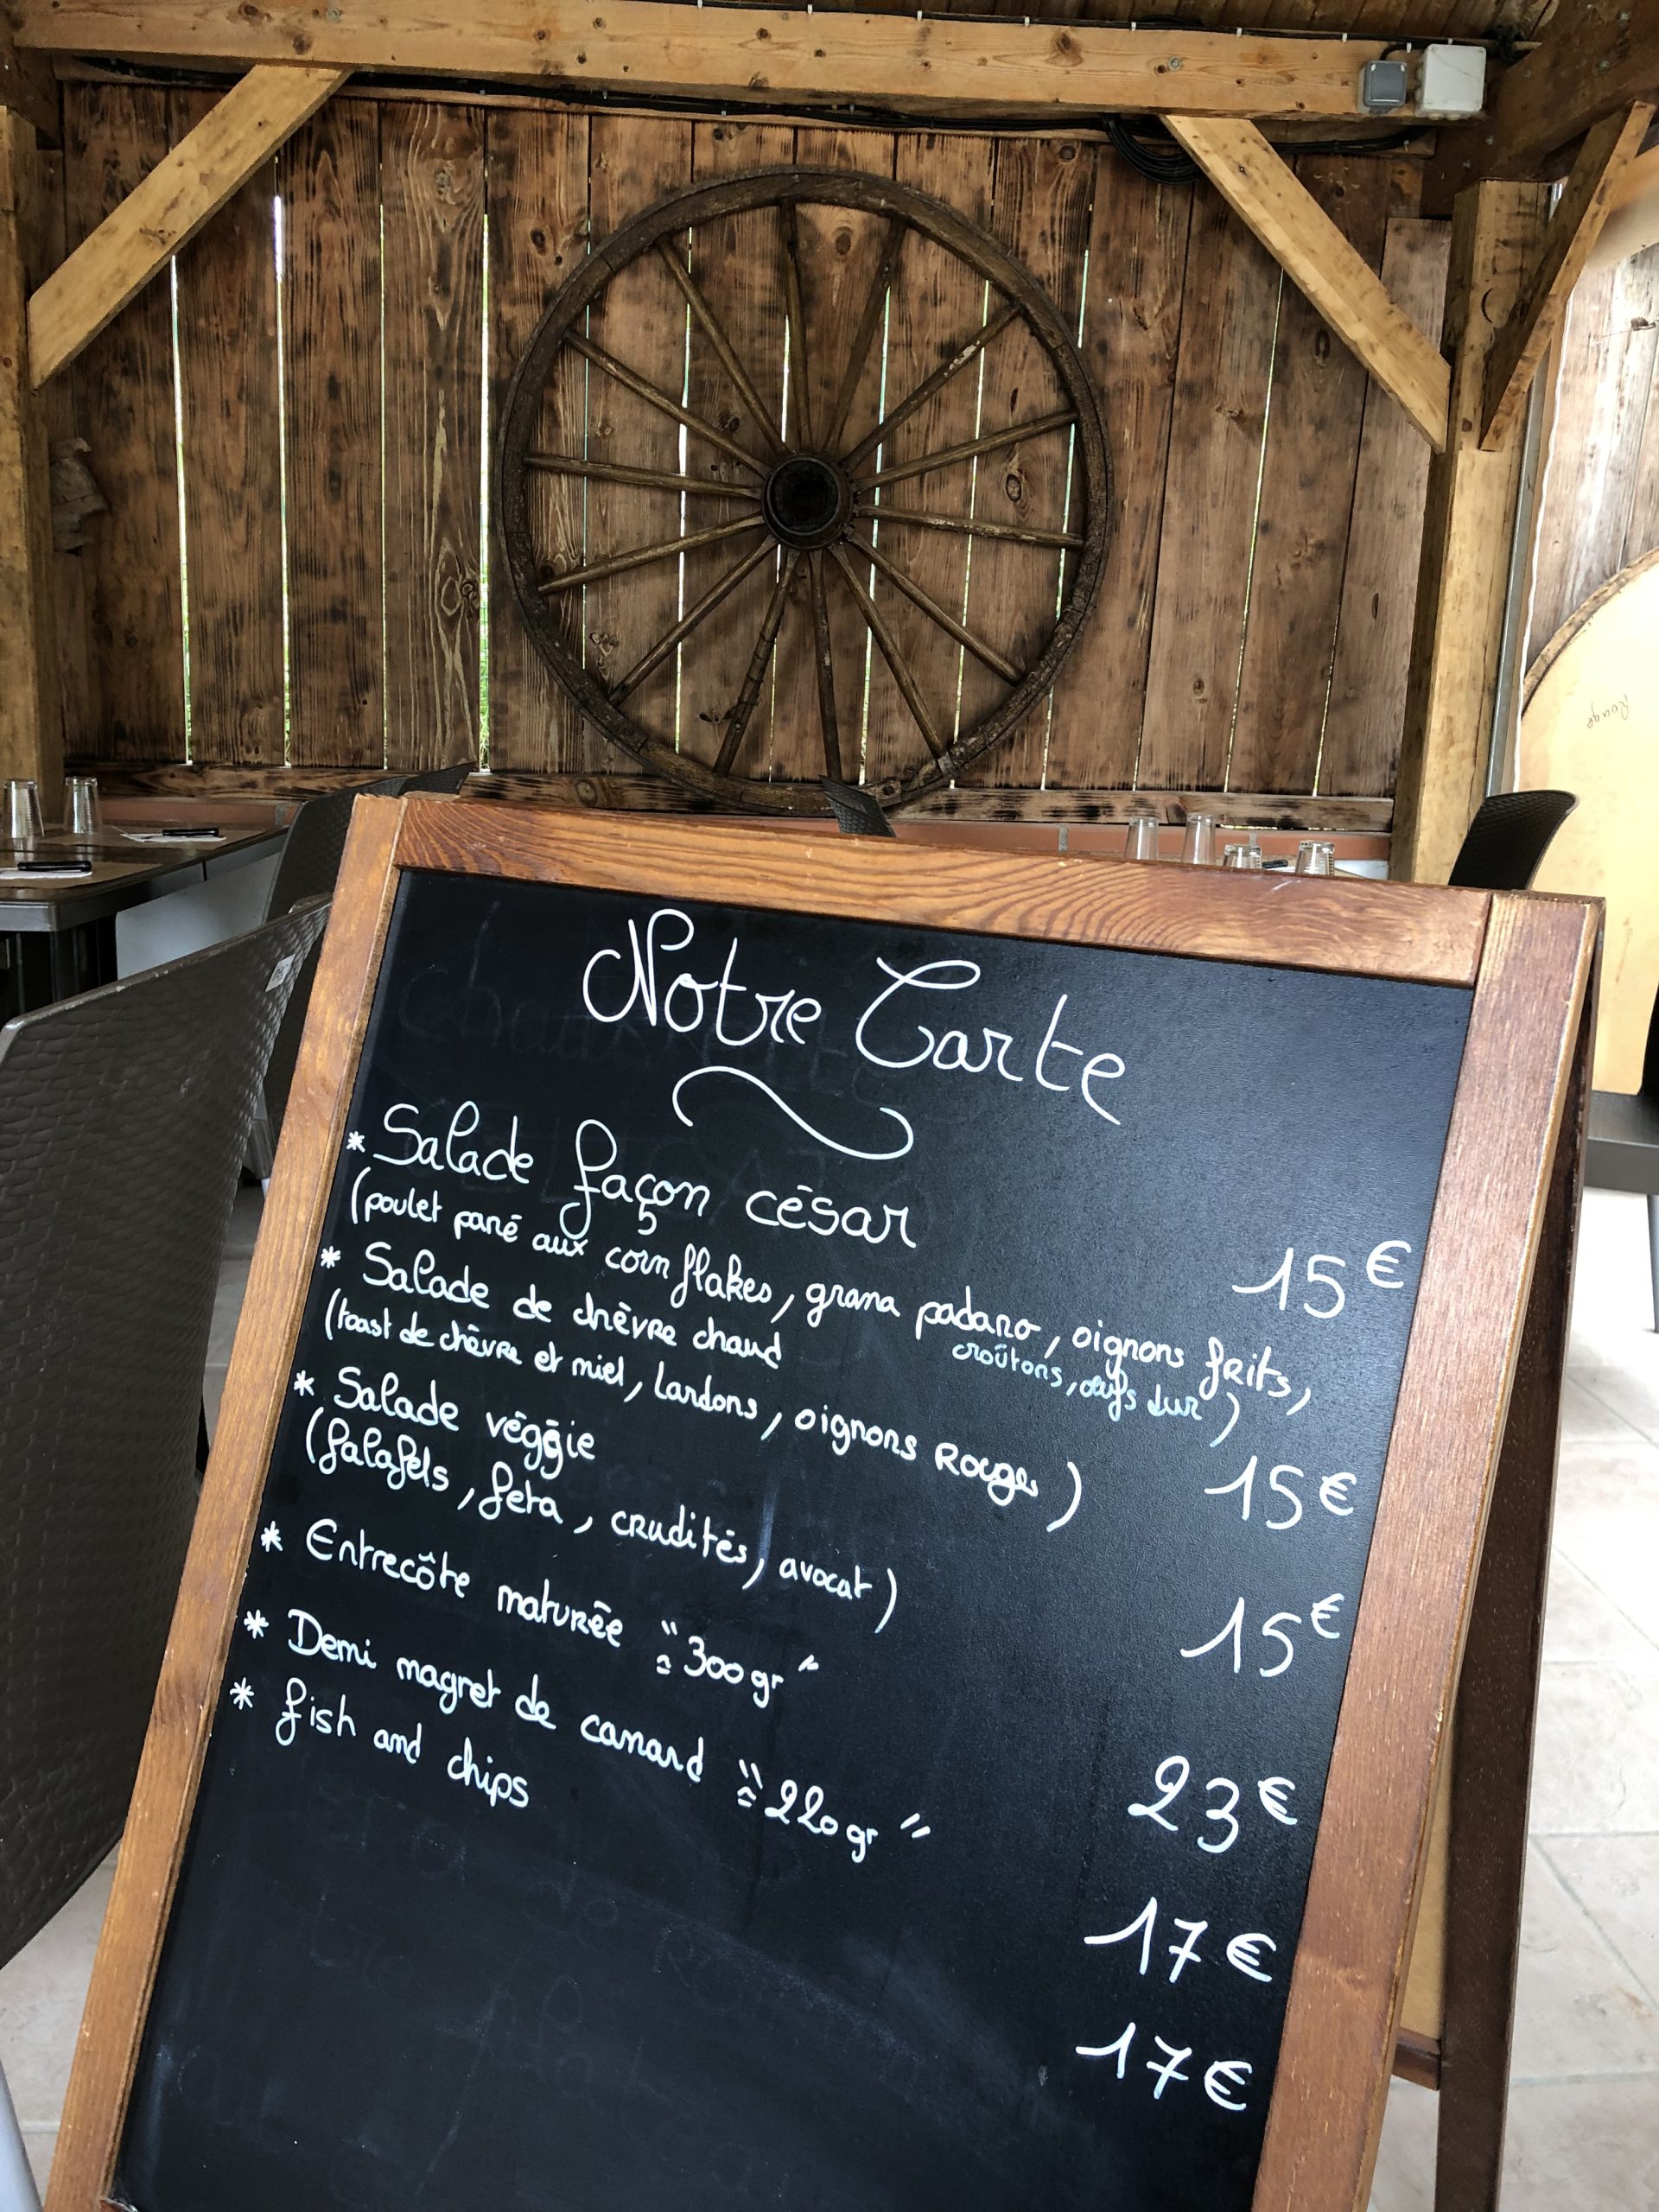 Notre Carte
* Salade façon césar 15€
(poulet pané aux corn flakes, grana padano, oignons frits,
croûtons, œufs dur)
* Salade de chèvre chaud 15€
(toast de chèvre et miel, lardons, oignons Rouges)
* Salade véggie 15€
(falafels, feta, crudités, avocat)
* Entrecôte maturée "≃300gr" 23€
* Demi magret de canard "≃220gr" 17€
* fish and chips 17€
Rouge